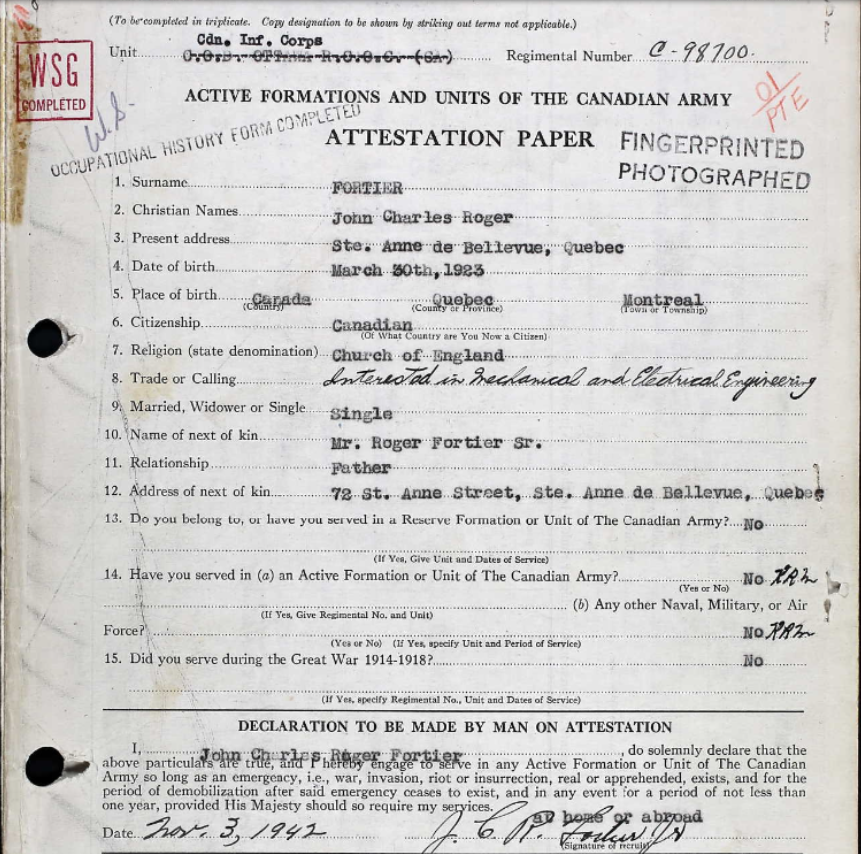 (To be completed in triplicate. Copy designation to be shown by striking out terms not applicable.)
Cdn. Inf. Corps
Unit C.O.D. OTTAWA R.C.O.C. (SA) Regimental Number C-98700.
WSG
COMPLETED
W.S.
01
PTE
ACTIVE FORMATIONS AND UNITS OF THE CANADIAN ARMY
OCCUPATIONAL HISTORY FORM COMPLETED
ATTESTATION PAPER
FINGERPRINTED
PHOTOGRAPHED
1. Surname FORTIER
2. Christian Names John Charles Roger
3. Present address Ste. Anne de Bellevue, Quebec
4. Date of birth March 30th, 1923
5. Place of birth Canada Quebec Montreal
(Country) (County or Province) (Town or Township)
6. Citizenship Canadian
(Of What Country are You Now a Citizen)
7. Religion (state denomination) Church of England
8. Trade or Calling Interested in Mechanical and Electrical Engineering
9. Married, Widower or Single Single
10. Name of next of kin Mr. Roger Fortier Sr.
11. Relationship Father
12. Address of next of kin 72 St. Anne Street, Ste. Anne de Bellevue, Quebec
13. Do you belong to, or have you served in a Reserve Formation or Unit of The Canadian Army? No
(If Yes, Give Unit and Dates of Service)
14. Have you served in (a) an Active Formation or Unit of The Canadian Army? No
(Yes or No)
(b) Any other Naval, Military, or Air
(If Yes, Give Regimental No. and Unit)
Force? No
(Yes or No) (If Yes, specify Unit and Period of Service)
15. Did you serve during the Great War 1914-1918? No
(If Yes, specify Regimental No., Unit and Dates of Service)
DECLARATION TO BE MADE BY MAN ON ATTESTATION
I, John Charles Roger Fortier, do solemnly declare that the
above particulars are true, and I hereby engage to serve in any Active Formation or Unit of The Canadian
Army so long as an emergency, i.e., war, invasion, riot or insurrection, real or apprehended, exists, and for the
period of demobilization after said emergency ceases to exist, and in any event for a period of not less than
one year, provided His Majesty should so require my services.
at home or abroad
Date Nov. 3, 1942 J. C. R. Fortier Jr
(Signature of recruit)